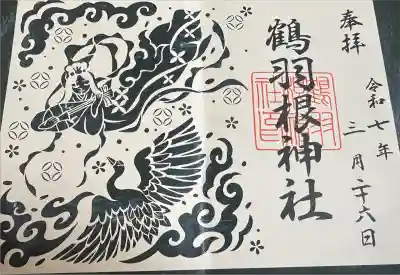 奉拝
鶴羽根神社
令和七年
三月二十六日